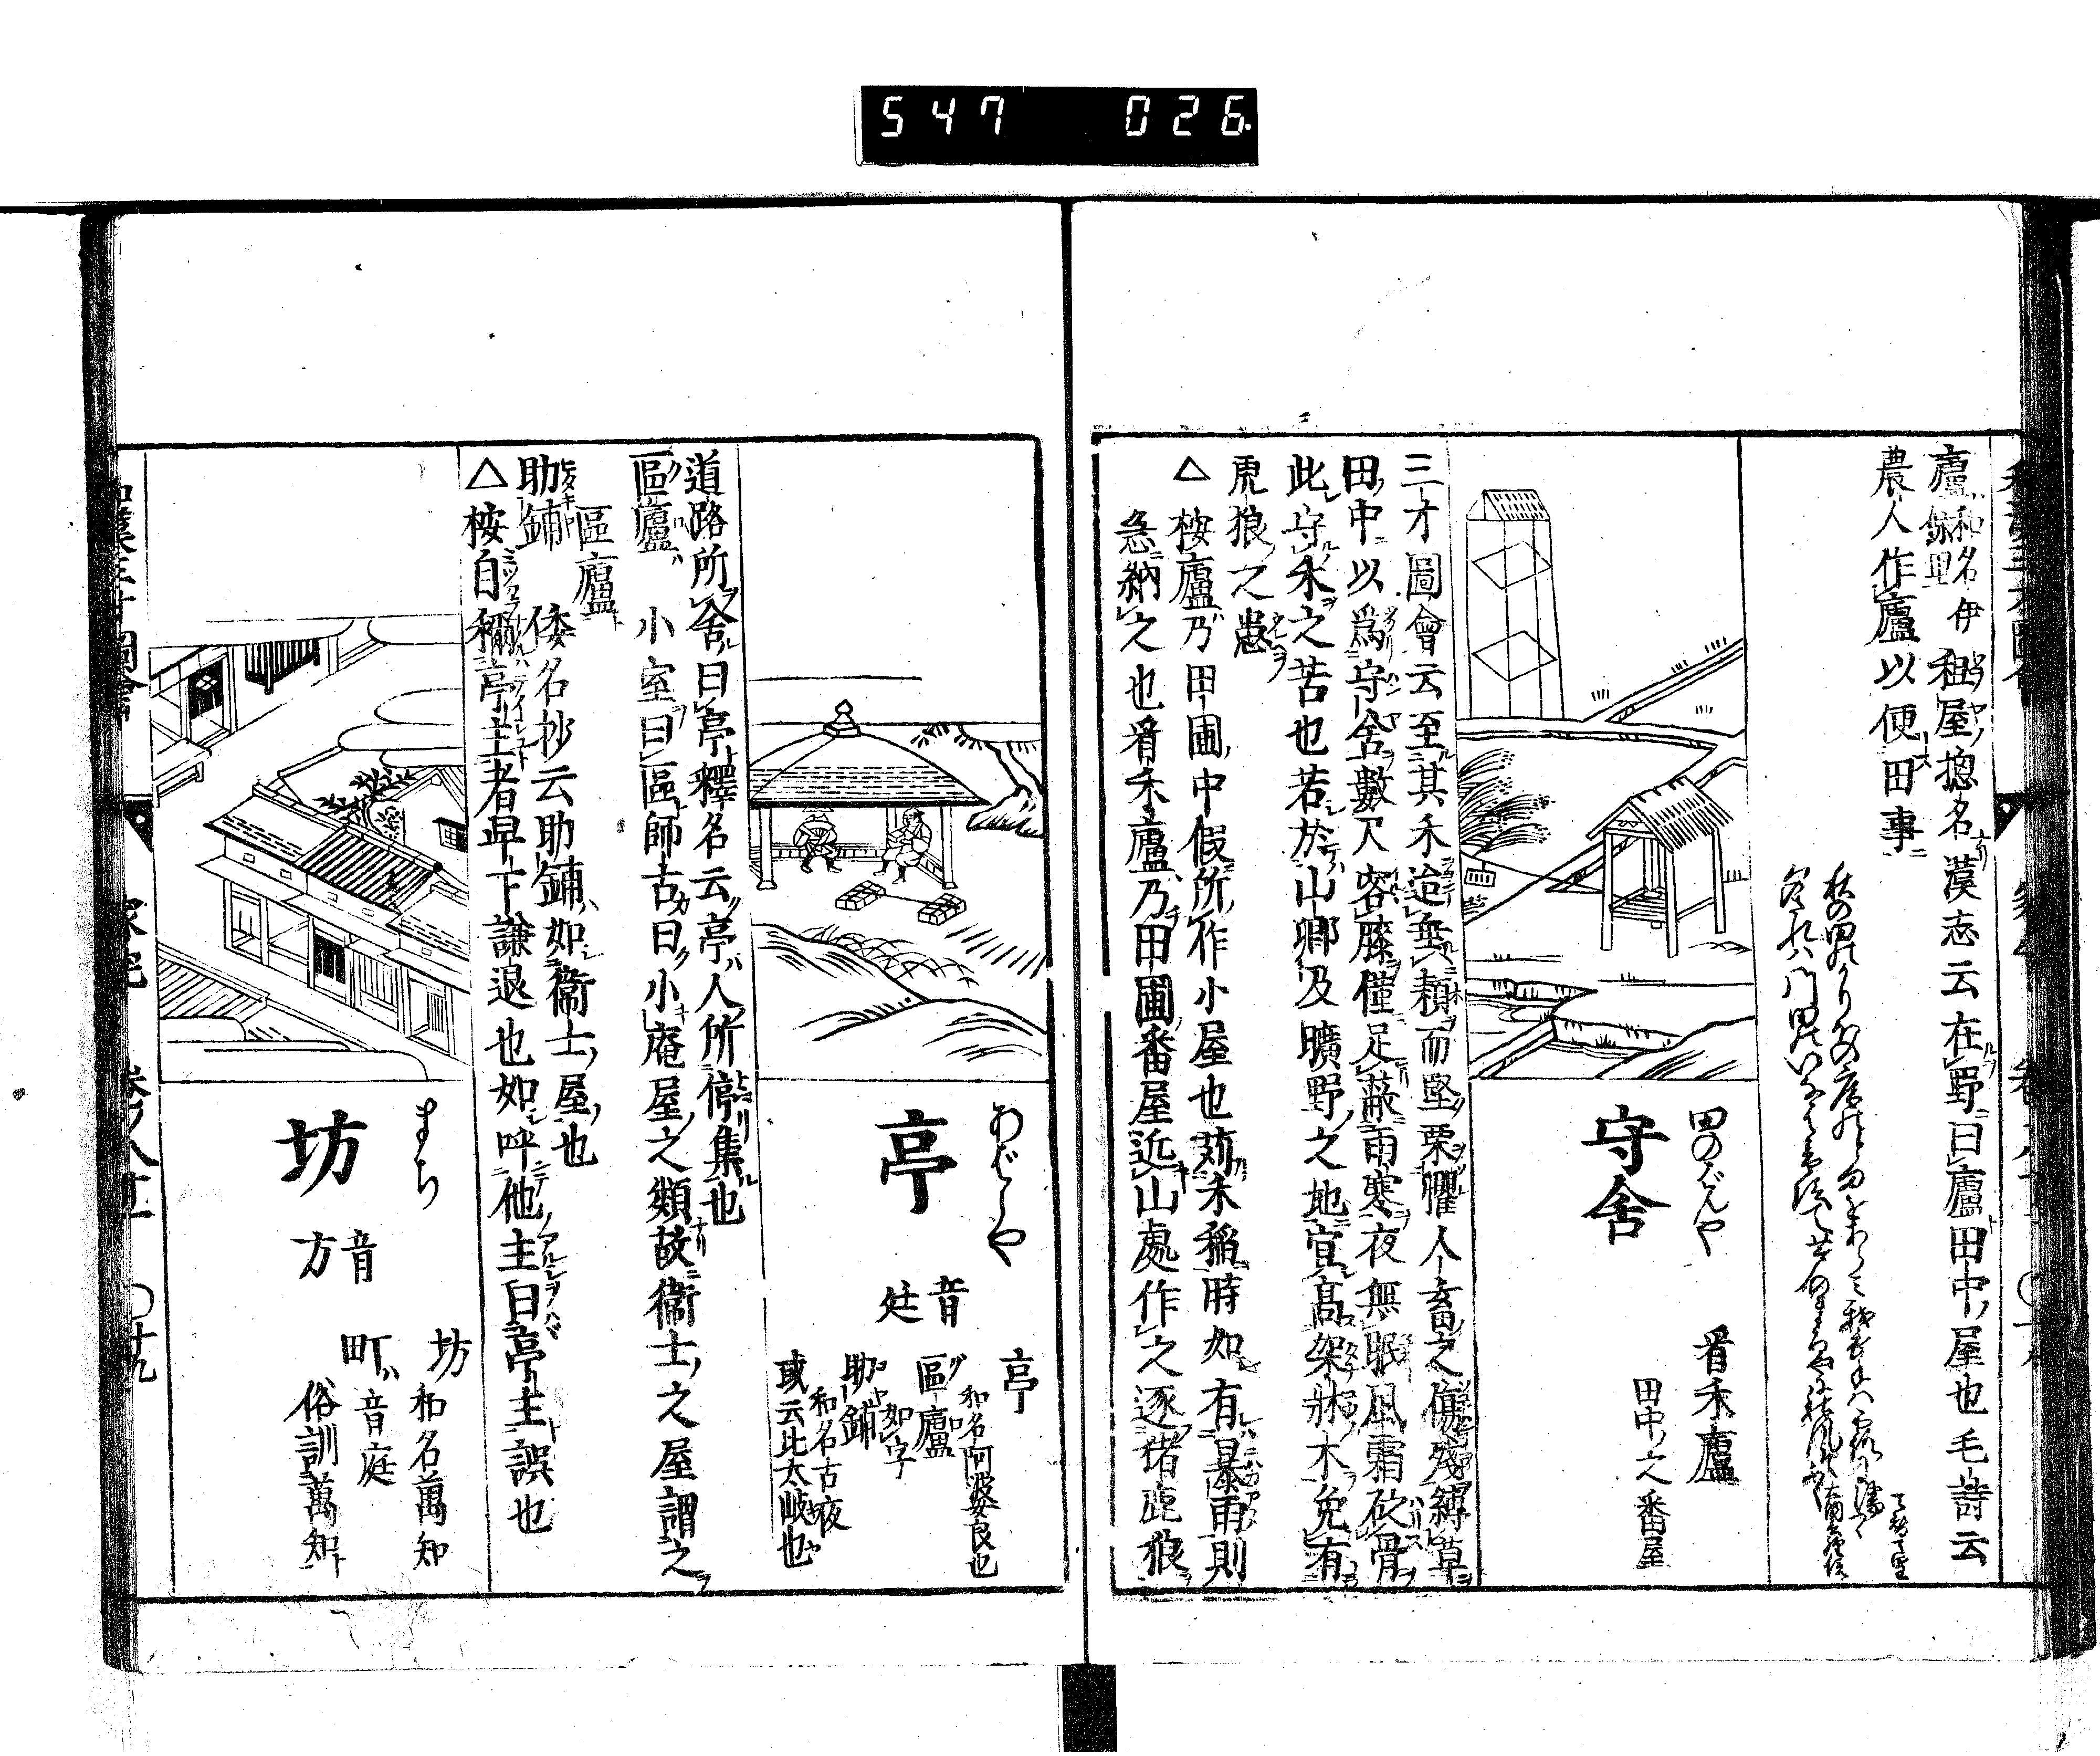 547 026
廬 和名伊保 和屋揔名 漢志云在野曰廬田中ノ屋也毛詩云
農人作廬以便田事
田のばんや
守舍
看禾廬
田中之番屋
三才圖會云至其禾迨垂穎而堅栗懼人畜之傷殘縛草
田中以爲守舍數尺容膝僅足蔽雨寒夜無眠風霜砭骨
此守禾之苦也若於山鄉及曠野之地宜高架牀木免有
虎狼之患
△按廬乃田圃中假所作小屋也苅禾稲時如有暴雨則
急納之也看禾廬乃田圃番屋近山處作之逐猪鹿狼
あばらや
亭
音廷
亭 和名阿婆良也
區廬 如字
助鋪 和名古夜
或云比太岐也
道路所舍曰亭釋名云亭人所停集也
區廬 小室曰區師古曰小庵屋之類故衞士之屋謂之
區廬
助鋪 倭名抄云助鋪如衞士屋也
△按自稱亭主者卑下謙退也如呼他主曰亭主誤也
まち
坊
音方
坊 和名萬知
町 音庭
俗訓萬知